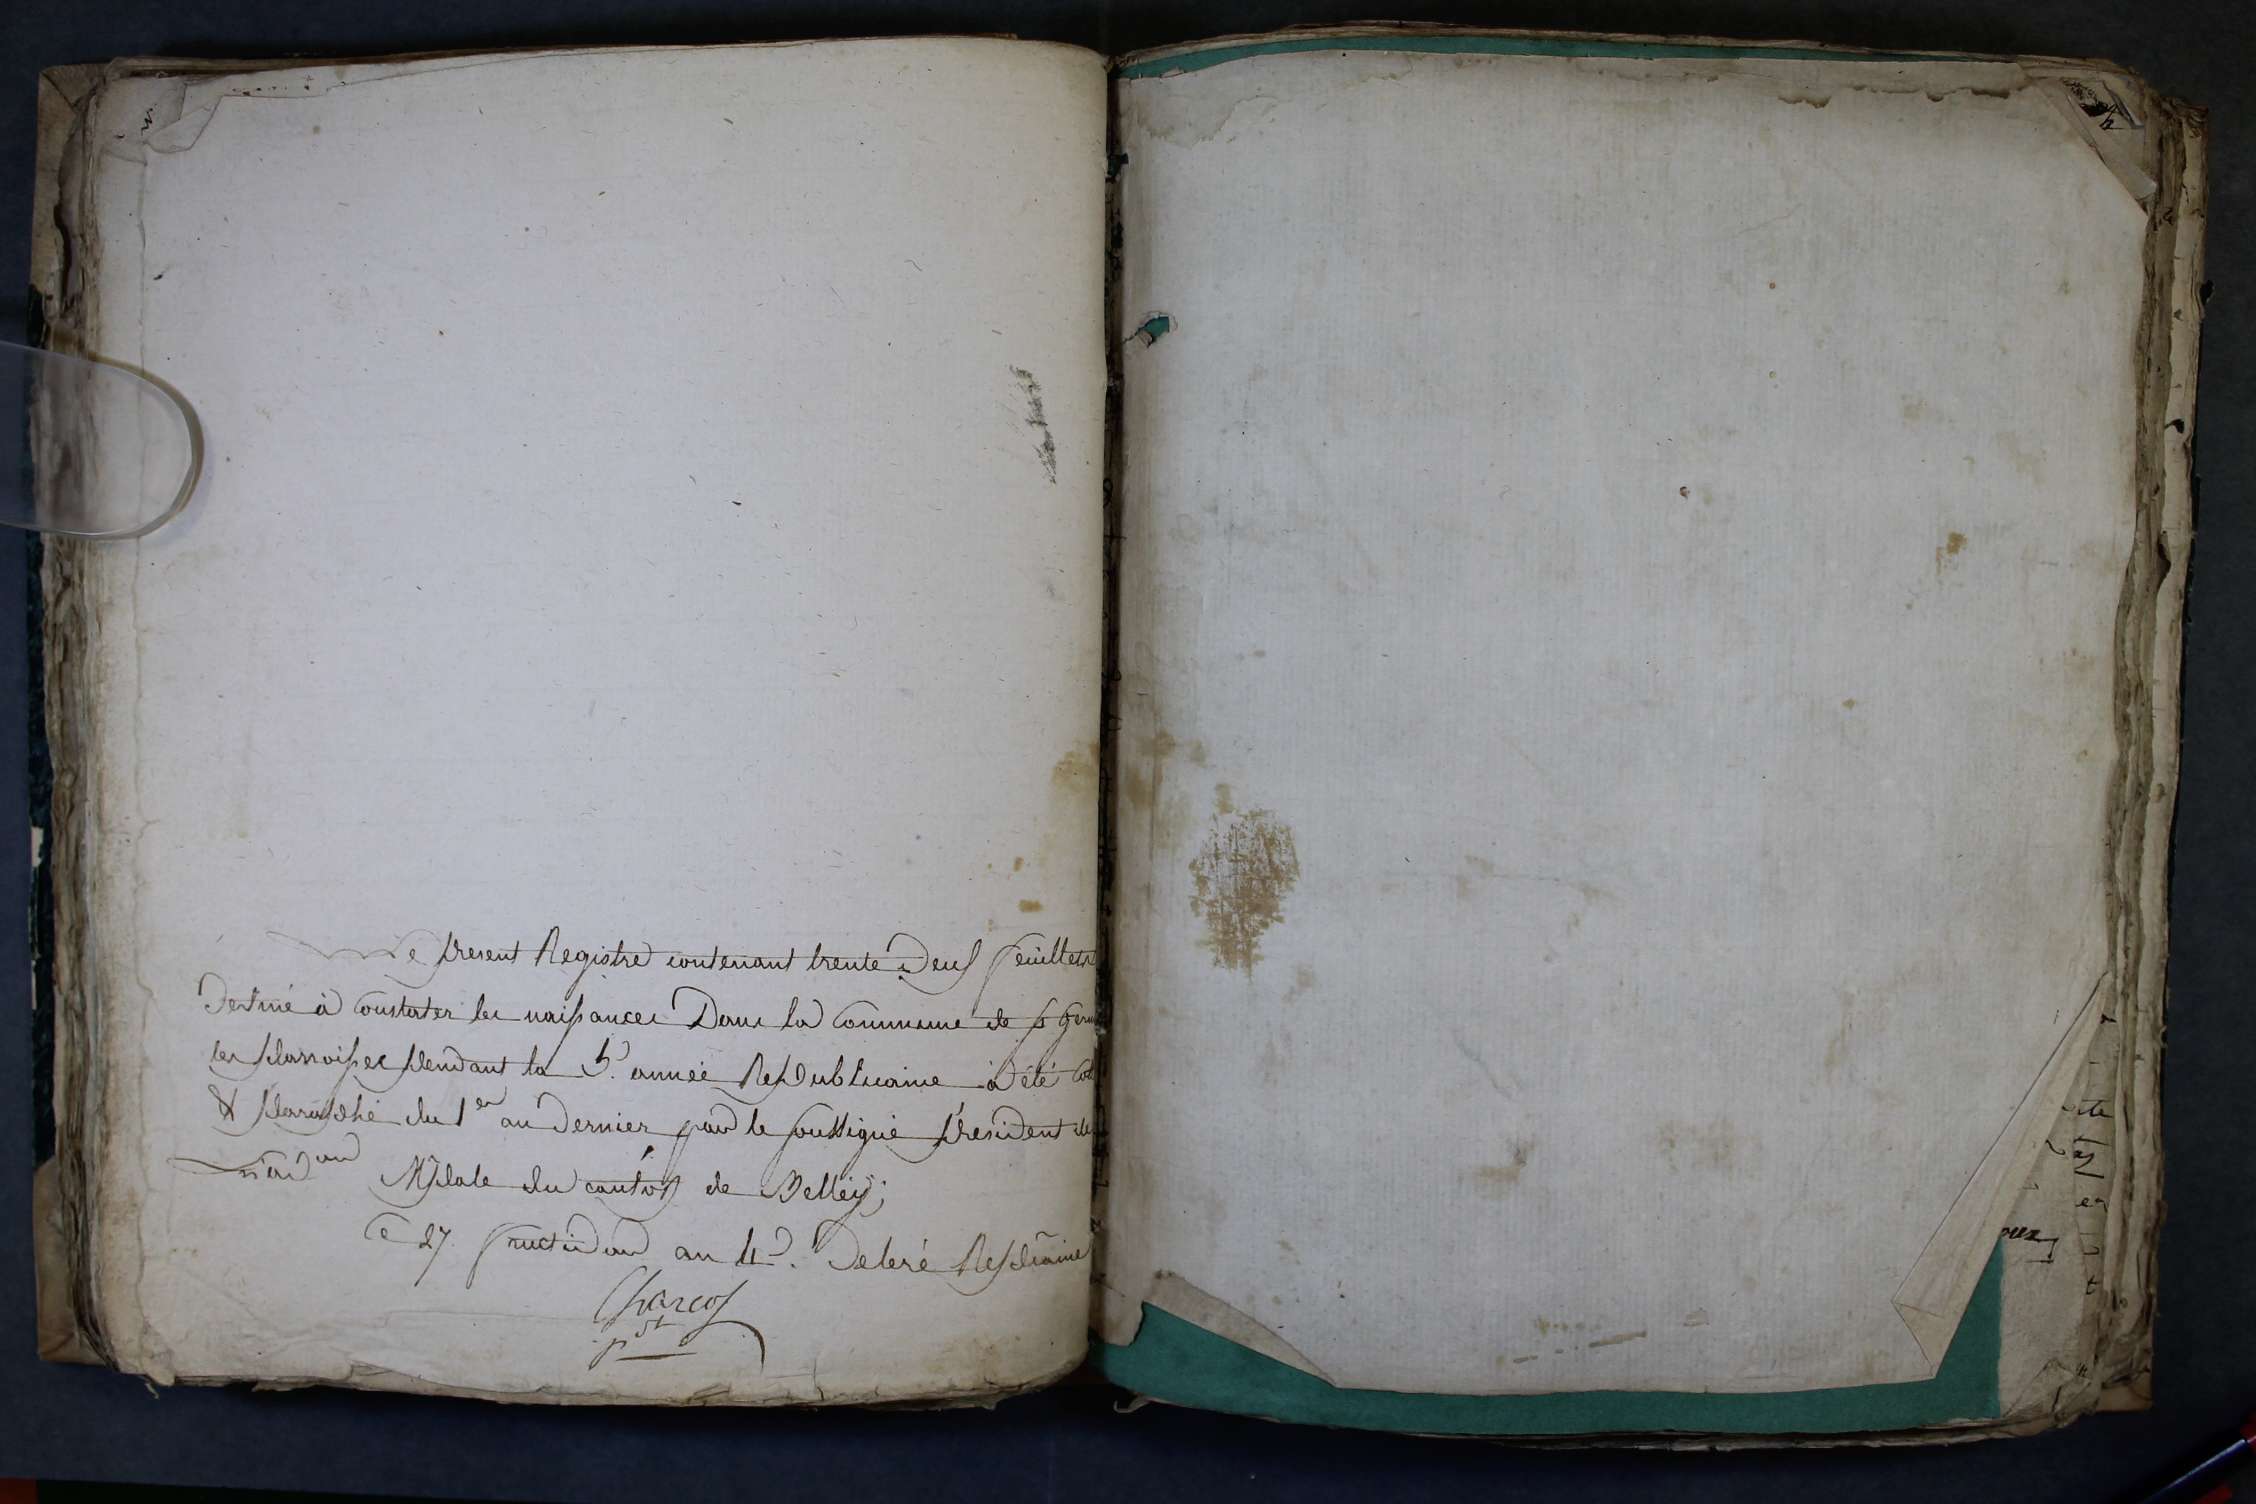 Le present Registre contenant trente Deux feuillets
Destiné à Constater les naissances Dans la Commune de St germ
les parroisses pendant la 5.e année Republicaine à été Cot
& paraphé du 1er au Dernier par le soussigné president de
Mpale du canton de Belley;
Ce 27 fructidor an 4e. De l'ere Repcaine
Charcot
pdt